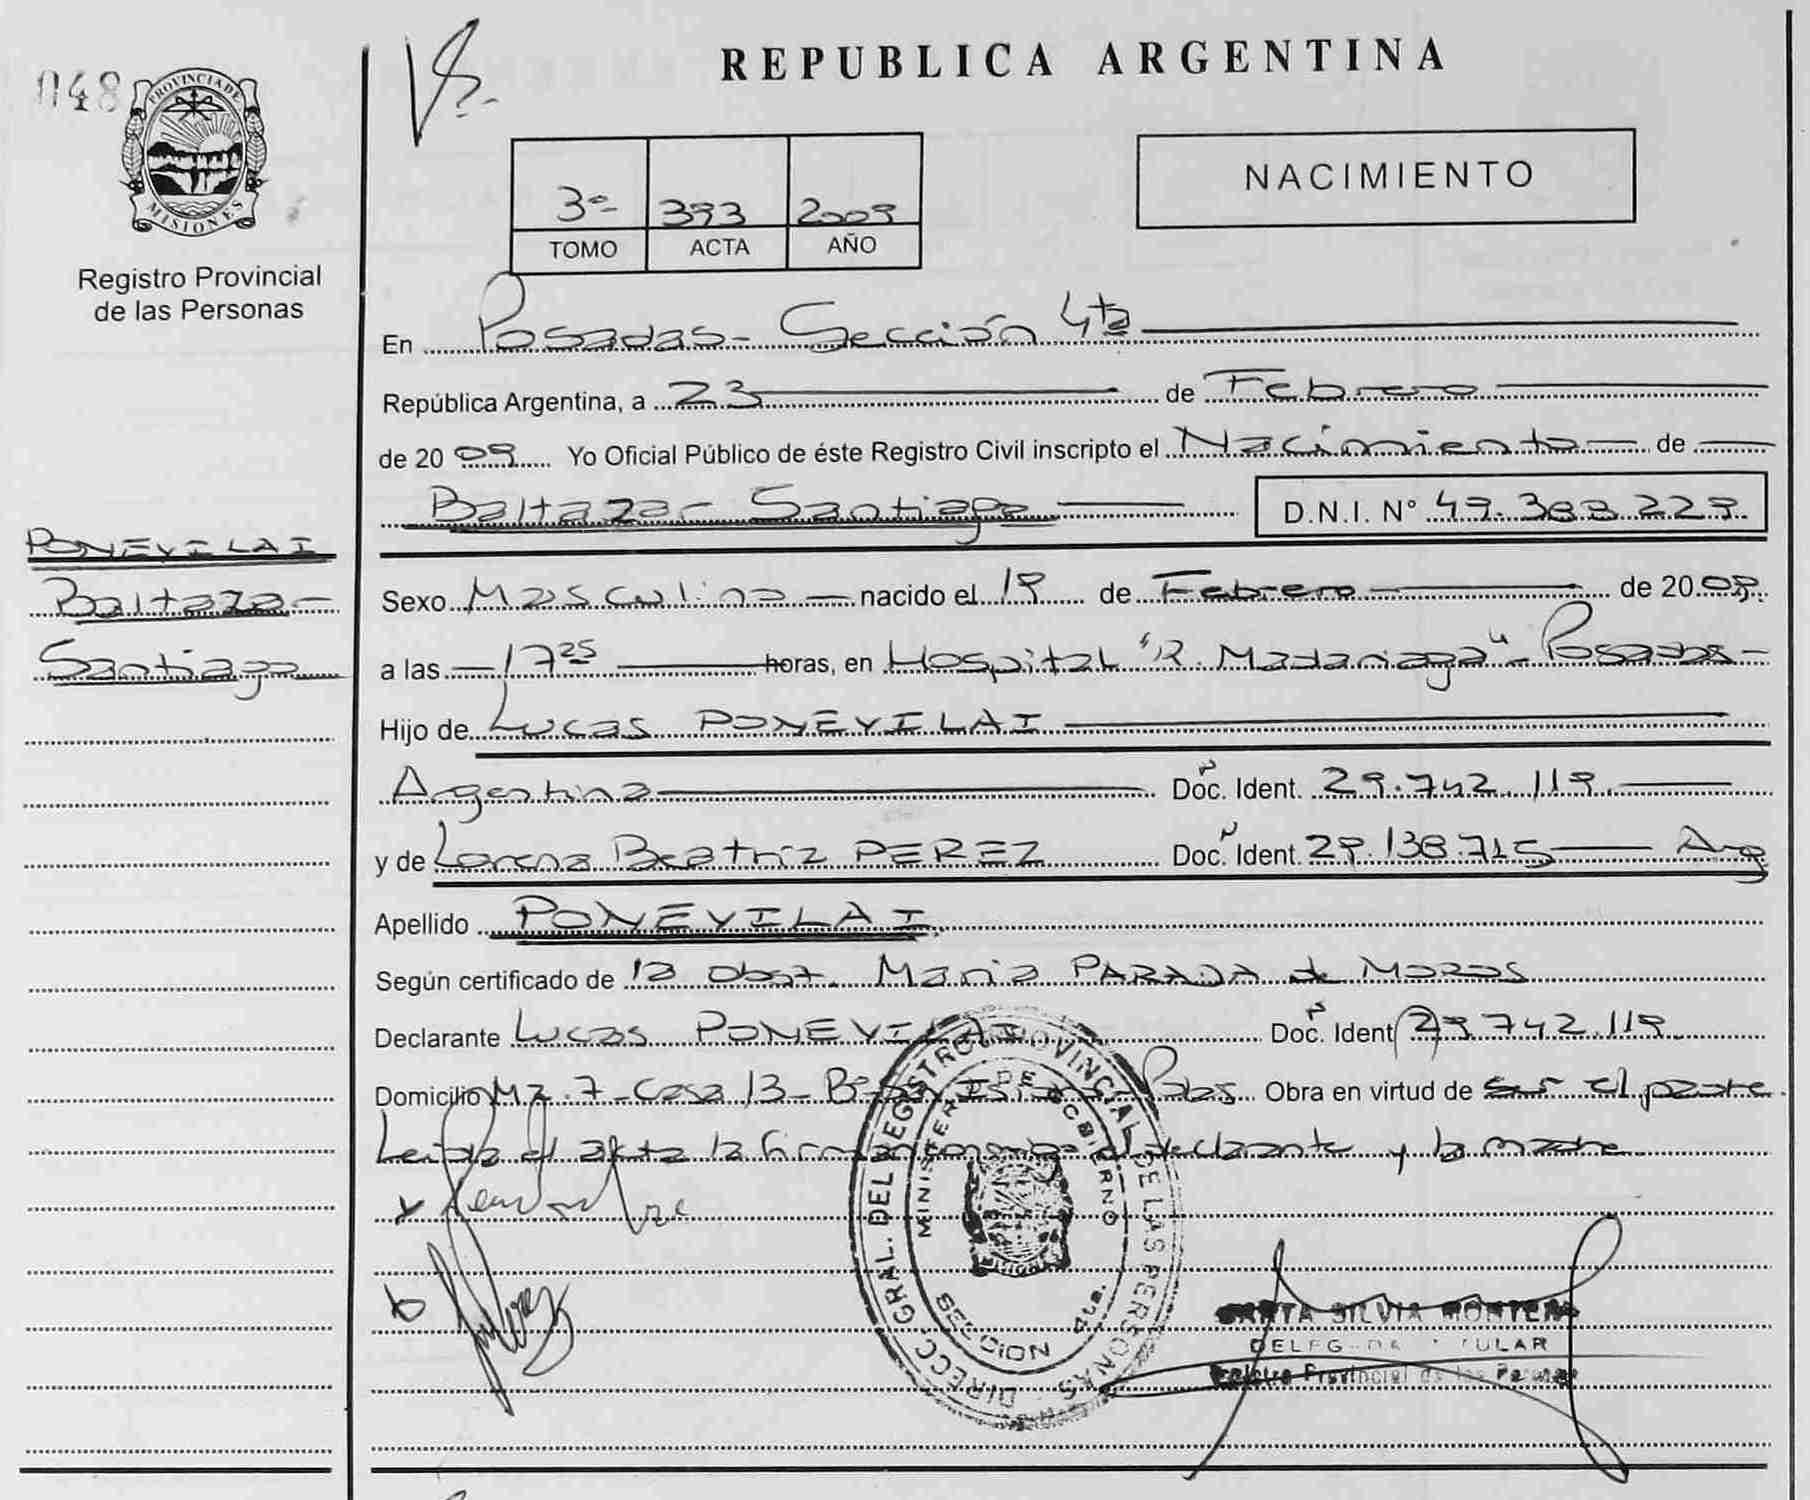 048
PROVINCIA DE
MISIONES
Registro Provincial
de las Personas
REPUBLICA ARGENTINA
NACIMIENTO
3º 393 2009
TOMO ACTA AÑO
En Posadas - Sección 4ta
República Argentina, a 23 de Febrero
de 2009 Yo Oficial Público de éste Registro Civil inscripto el Nacimiento de
Baltazar Santiago D.N.I. Nº 49.388.229
PONEVILAI
Baltazar
Santiago
Sexo Masculino nacido el 19 de Febrero de 2009
a las 17 25 horas, en Hospital "R. Madariaga" - Posadas -
Hijo de Lucas PONEVILAI
Argentina Doc. Ident. 29.742.119
y de Lorena Beatriz PEREZ Doc. Ident. 29.138.715 Arg
Apellido PONEVILAI
Según certificado de la Obst. Maria PARADA de Moras
Declarante Lucas PONEVILAI Doc. Ident 29.742.119
Domicilio Mz. 7 - Casa 13 - Pdas. Obra en virtud de ser el padre
Leida el acta la firman el declarante y la madre
DIRECC. GRAL. DEL REGISTRO PROVINCIAL DE LAS PERSONAS
MINISTERIO DE GOBIERNO
SECCION 4ta.
SILVIA
Registro Provincial de las Personas